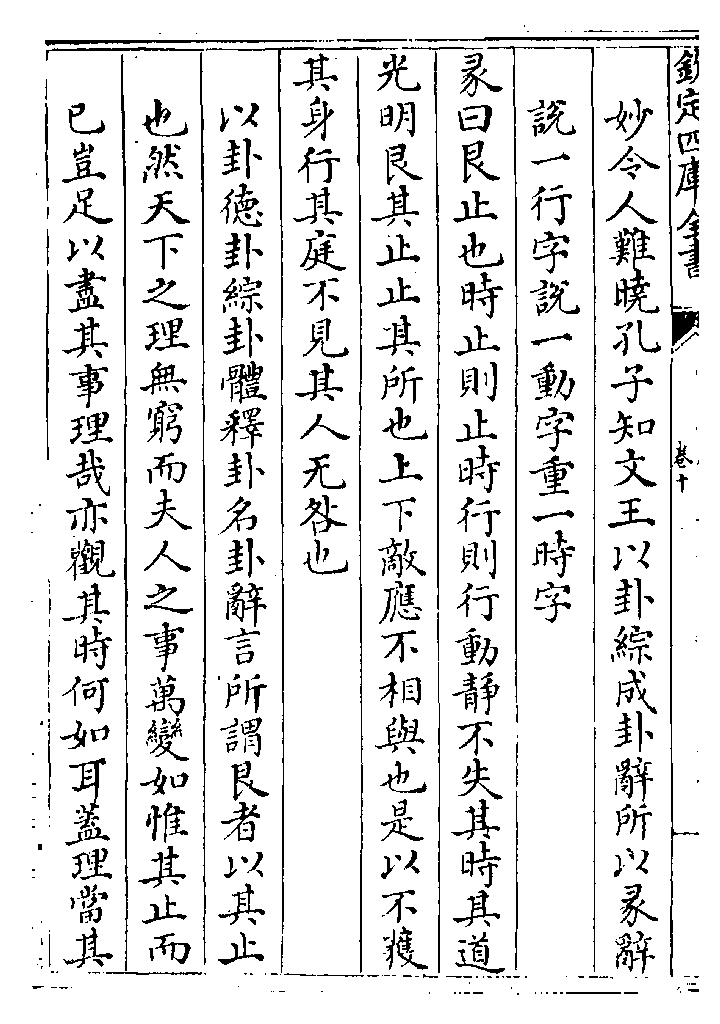 欽定四庫全書
卷十
妙令人難曉孔子知文王以卦綜成卦辭所以彖辭
說一行字說一動字重一時字
彖曰艮止也時止則止時行則行動靜不失其時其道
光明艮其止止其所也上下敵應不相與也是以不獲
其身行其庭不見其人无咎也
以卦德卦綜卦體釋卦名卦辭言所謂艮者以其止
也然天下之理無窮而夫人之事萬變如惟其止而
已豈足以盡其事理哉亦觀其時何如耳蓋理當其